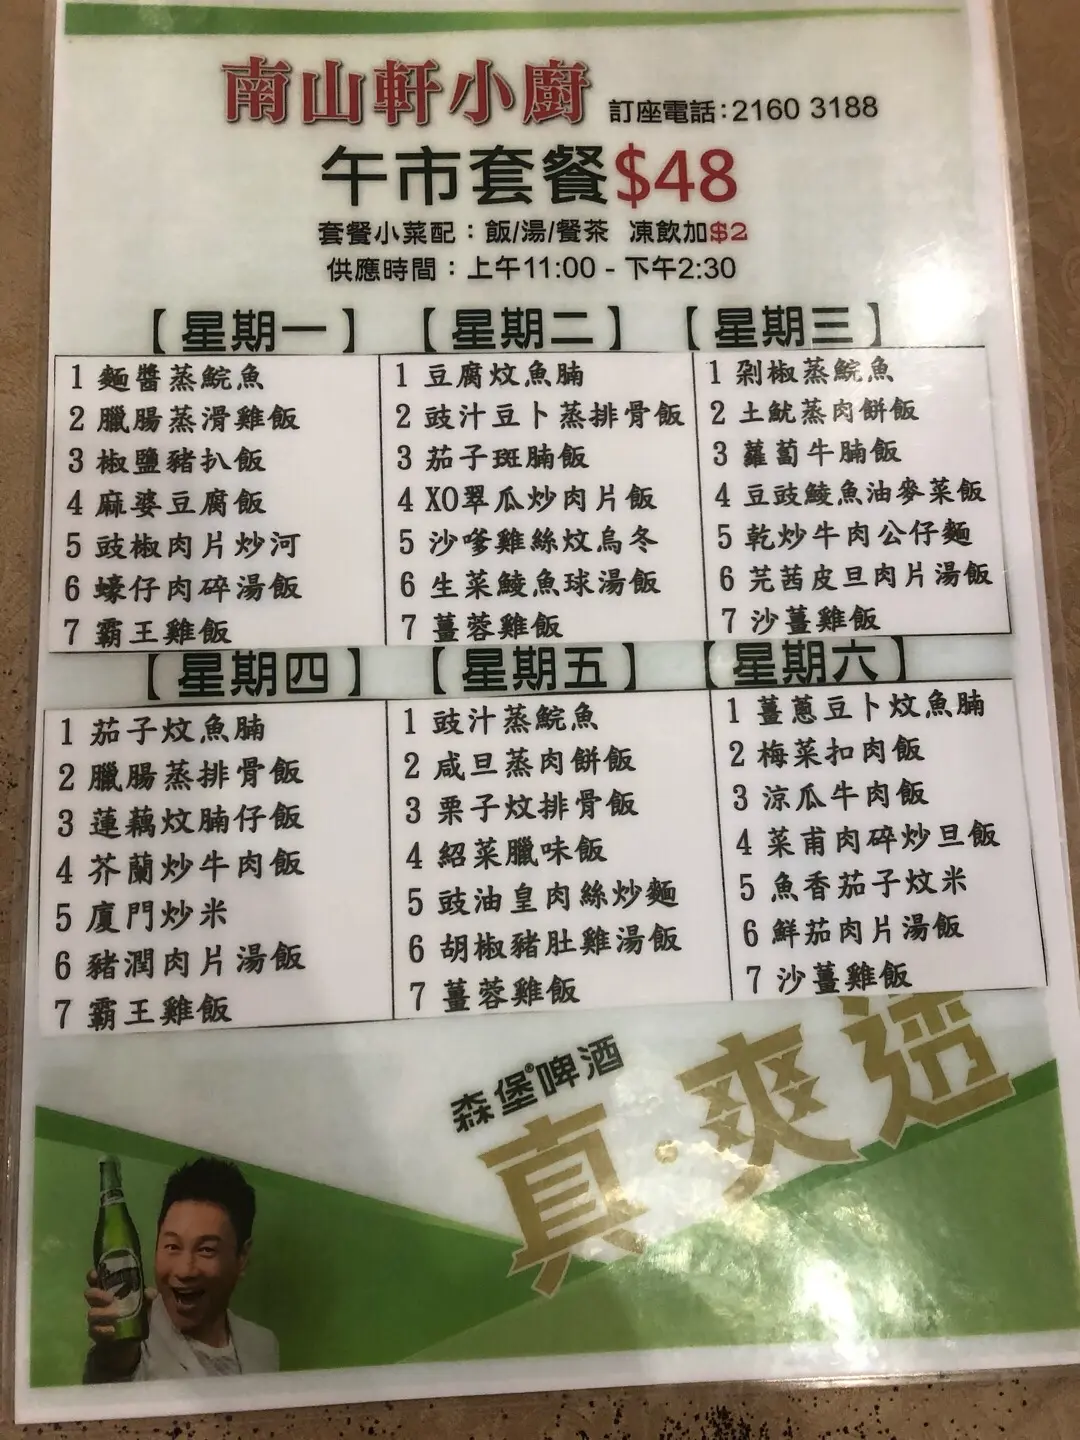 南山軒小廚 訂座電話:2160 3188
午市套餐$48
套餐小菜配：飯/湯/餐茶 凍飲加$2
供應時間：上午11:00 - 下午2:30
【星期一】
1 麵醬蒸鯇魚
2 臘腸蒸滑雞飯
3 椒鹽豬扒飯
4 麻婆豆腐飯
5 豉椒肉片炒河
6 蠔仔肉碎湯飯
7 霸王雞飯
【星期二】
1 豆腐炆魚腩
2 豉汁豆卜蒸排骨飯
3 茄子斑腩飯
4 XO翠瓜炒肉片飯
5 沙嗲雞絲炆烏冬
6 生菜鯪魚球湯飯
7 薑蓉雞飯
【星期三】
1 剁椒蒸鯇魚
2 土魷蒸肉餅飯
3 蘿蔔牛腩飯
4 豆豉鯪魚油麥菜飯
5 乾炒牛肉公仔麵
6 芫茜皮旦肉片湯飯
7 沙薑雞飯
【星期四】
1 茄子炆魚腩
2 臘腸蒸排骨飯
3 蓮藕炆腩仔飯
4 芥蘭炒牛肉飯
5 廈門炒米
6 豬潤肉片湯飯
7 霸王雞飯
【星期五】
1 豉汁蒸鯇魚
2 咸旦蒸肉餅飯
3 栗子炆排骨飯
4 紹菜臘味飯
5 豉油皇肉絲炒麵
6 胡椒豬肚雞湯飯
7 薑蓉雞飯
【星期六】
1 薑蔥豆卜炆魚腩
2 梅菜扣肉飯
3 涼瓜牛肉飯
4 菜甫肉碎炒旦飯
5 魚香茄子炆米
6 鮮茄肉片湯飯
7 沙薑雞飯
森堡®啤酒
真·爽